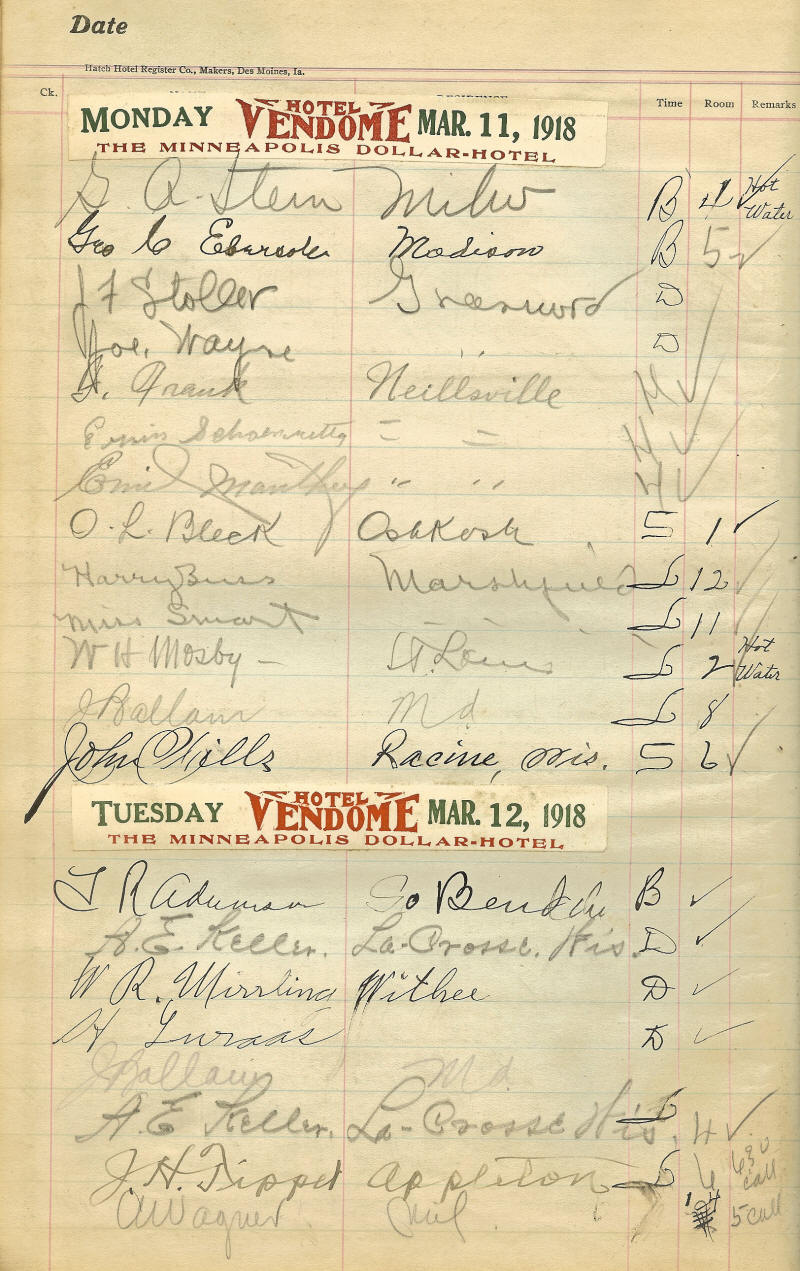 Date
Hatch Hotel Register Co., Makers, Des Moines, Ia.
Ck. RESIDENCE Time Room Remarks
MONDAY HOTEL VENDOME MAR. 11, 1918
THE MINNEAPOLIS DOLLAR-HOTEL
G. A. Stein Milw B 4 ✓ Hot Water
Geo C Ebersole Madison B 5 ✓
J F Stoller Greenwood D
Joe. Wayne " D
Frank Neillsville H ✓
= = H ✓
Emil Manthey " " H ✓
O. L. Bleck Oshkosh S 1 ✓
Harry Buss Marshfield L 12 ✓
Miss Smart - - L 11 ✓
W H Mosby - St. Louis L 2 ✓ Hot Water
J Ballam Md L 8 ✓
John C Wills Racine, Wis. S 6 ✓
TUESDAY HOTEL VENDOME MAR. 12, 1918
THE MINNEAPOLIS DOLLAR-HOTEL
R Adamson B ✓
A. E. Keller. La-Crosse. Wis. D ✓
W R. Mirrling Withee D ✓
H Luraas D ✓
J Ballam Md.
A. E Keller. La-Crosse Wis. L 4 ✓
J. H. Tippet Appleton L 6 630 call
A Wagner Mil 14 5 call